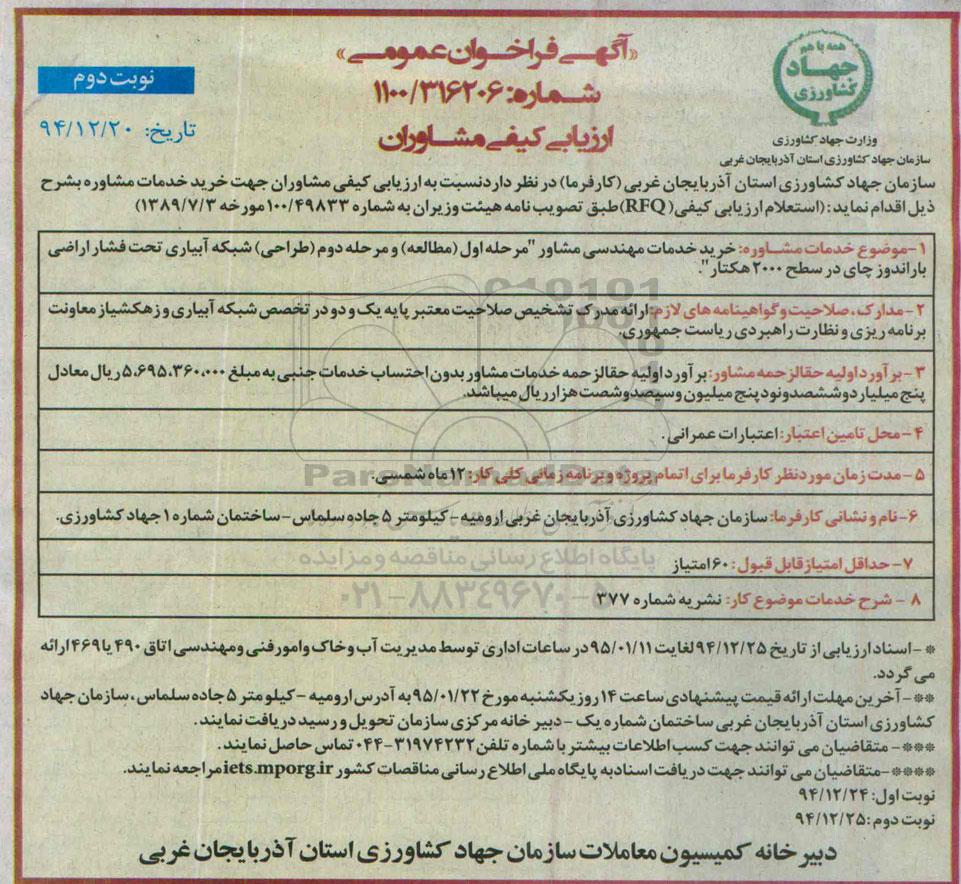 «آگهی فراخوان عمومی»
شماره: ۱۱۰۰/۳۱۶۲۰۶
ارزیابی کیفی مشاوران
همه با هم
جهاد
کشاورزی
وزارت جهاد کشاورزی
سازمان جهاد کشاورزی استان آذربایجان غربی
نوبت دوم
تاریخ: ۹۴/۱۲/۲۰
سازمان جهاد کشاورزی استان آذربایجان غربی (کارفرما) در نظر دارد نسبت به ارزیابی کیفی مشاوران جهت خرید خدمات مشاوره بشرح
ذیل اقدام نماید: (استعلام ارزیابی کیفی( RFQ) طبق تصویب نامه هیئت وزیران به شماره ۱۰۰/۴۹۸۳۳ مورخه ۱۳۸۹/۷/۳)
۱-موضوع خدمات مشاوره: خرید خدمات مهندسی مشاور "مرحله اول (مطالعه) و مرحله دوم (طراحی) شبکه آبیاری تحت فشار اراضی
باراندوز چای در سطح ۲۰۰۰ هکتار".
۲-مدارک، صلاحیت و گواهینامه های لازم: ارائه مدرک تشخیص صلاحیت معتبر پایه یک و دو در تخصص شبکه آبیاری و زهکشی از معاونت
برنامه ریزی و نظارت راهبردی ریاست جمهوری.
۳-برآورد اولیه حق الزحمه مشاور: برآورد اولیه حق الزحمه خدمات مشاور بدون احتساب خدمات جنبی به مبلغ ۵،۶۹۵،۳۶۰،۰۰۰ ریال معادل
پنج میلیارد و ششصد و نود پنج میلیون و سیصد و شصت هزار ریال میباشد.
۴-محل تامین اعتبار: اعتبارات عمرانی.
۵-مدت زمان مورد نظر کارفرما برای اتمام پروژه و برنامه زمانی کلی کار: ۱۲ ماه شمسی.
۶-نام و نشانی کارفرما: سازمان جهاد کشاورزی آذربایجان غربی ارومیه - کیلومتر ۵ جاده سلماس - ساختمان شماره ۱ جهاد کشاورزی.
۷-حداقل امتیاز قابل قبول: ۶۰ امتیاز
۸- شرح خدمات موضوع کار: نشریه شماره ۳۷۷
ParsNamadData
پایگاه اطلاع رسانی مناقصه و مزایده
۰۲۱-۸۸۳۴۹۶۷۰-۵
* -اسناد ارزیابی از تاریخ ۹۴/۱۲/۲۵ لغایت ۹۵/۰۱/۱۱ در ساعات اداری توسط مدیریت آب و خاک و امور فنی و مهندسی اتاق ۴۹۰ یا ۴۶۹ ارائه
می گردد.
**- آخرین مهلت ارائه قیمت پیشنهادی ساعت ۱۴ روز یکشنبه مورخ ۹۵/۰۱/۲۲ به آدرس ارومیه - کیلومتر ۵ جاده سلماس، سازمان جهاد
کشاورزی استان آذربایجان غربی ساختمان شماره یک - دبیر خانه مرکزی سازمان تحویل و رسید دریافت نمایند.
***- متقاضیان می توانند جهت کسب اطلاعات بیشتر با شماره تلفن ۳۱۹۷۴۲۳۲-۰۴۴ تماس حاصل نمایند.
****-متقاضیان می توانند جهت دریافت اسناد به پایگاه ملی اطلاع رسانی مناقصات کشور iets.mporg.ir مراجعه نمایند.
نوبت اول: ۹۴/۱۲/۲۴
نوبت دوم: ۹۴/۱۲/۲۵
دبیر خانه کمیسیون معاملات سازمان جهاد کشاورزی استان آذربایجان غربی